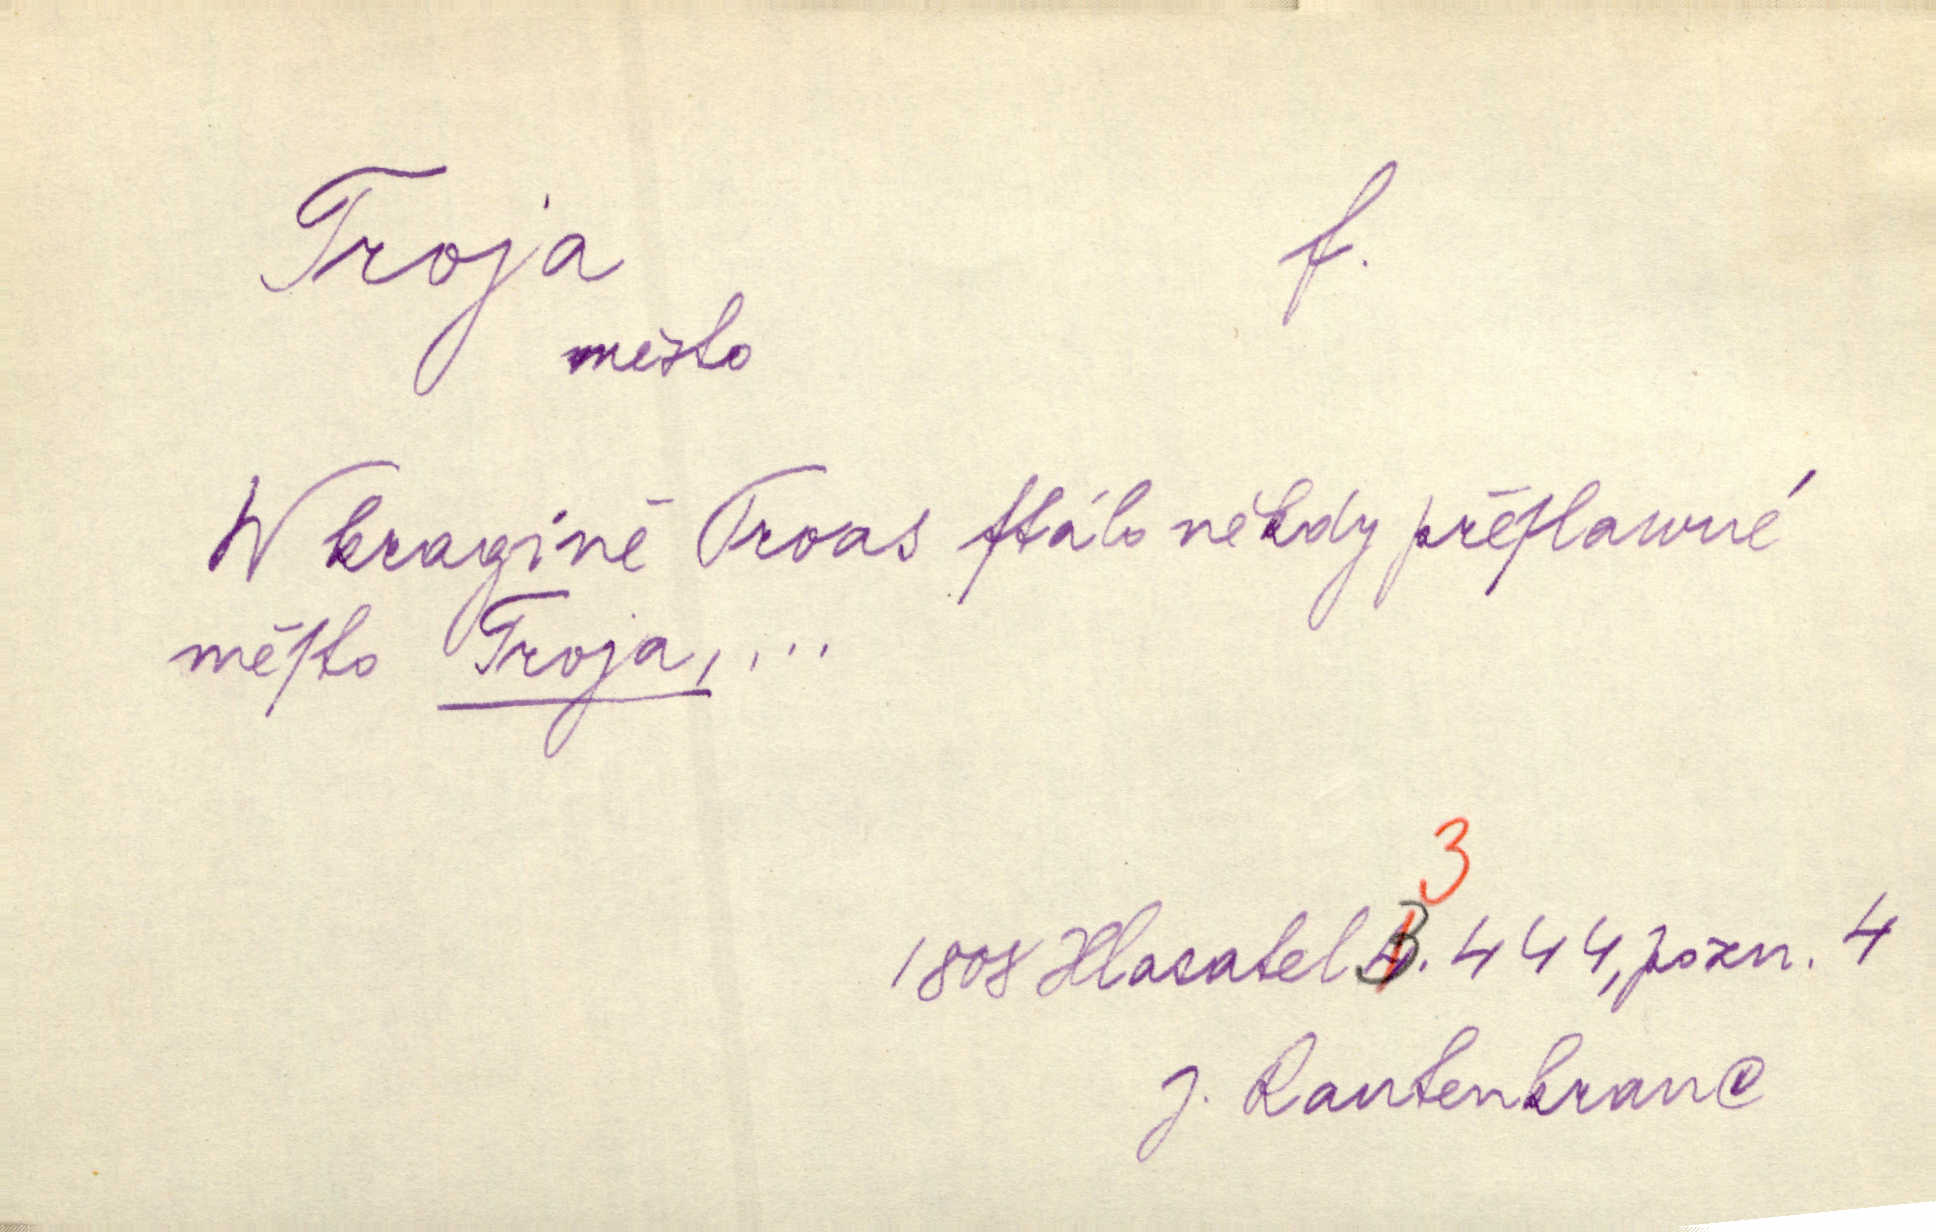 Troja f.
město
W kragině Troas ſtálo někdy přeſlawné
měſto Troja, ...
3
1808 Hlasatel . 444, pozn. 4
J. Rautenkranc